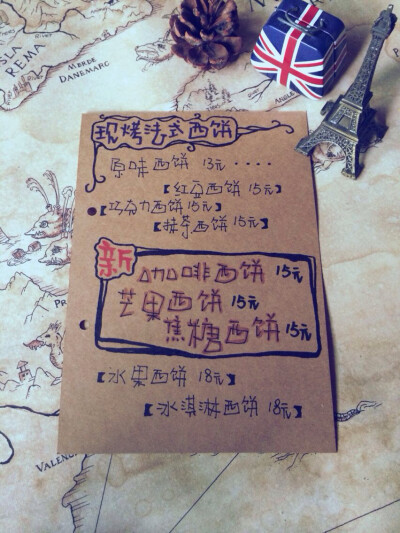 现烤法式西饼
原味西饼 13元 ····
【红豆西饼 15元】
【巧克力西饼 15元】
【抹茶西饼 15元】
新
咖啡西饼 15元
芒果西饼 15元
焦糖西饼 15元
【水果西饼 18元】
【冰淇淋西饼 18元】
MERDE
DANEMARC
REMA
VALEN